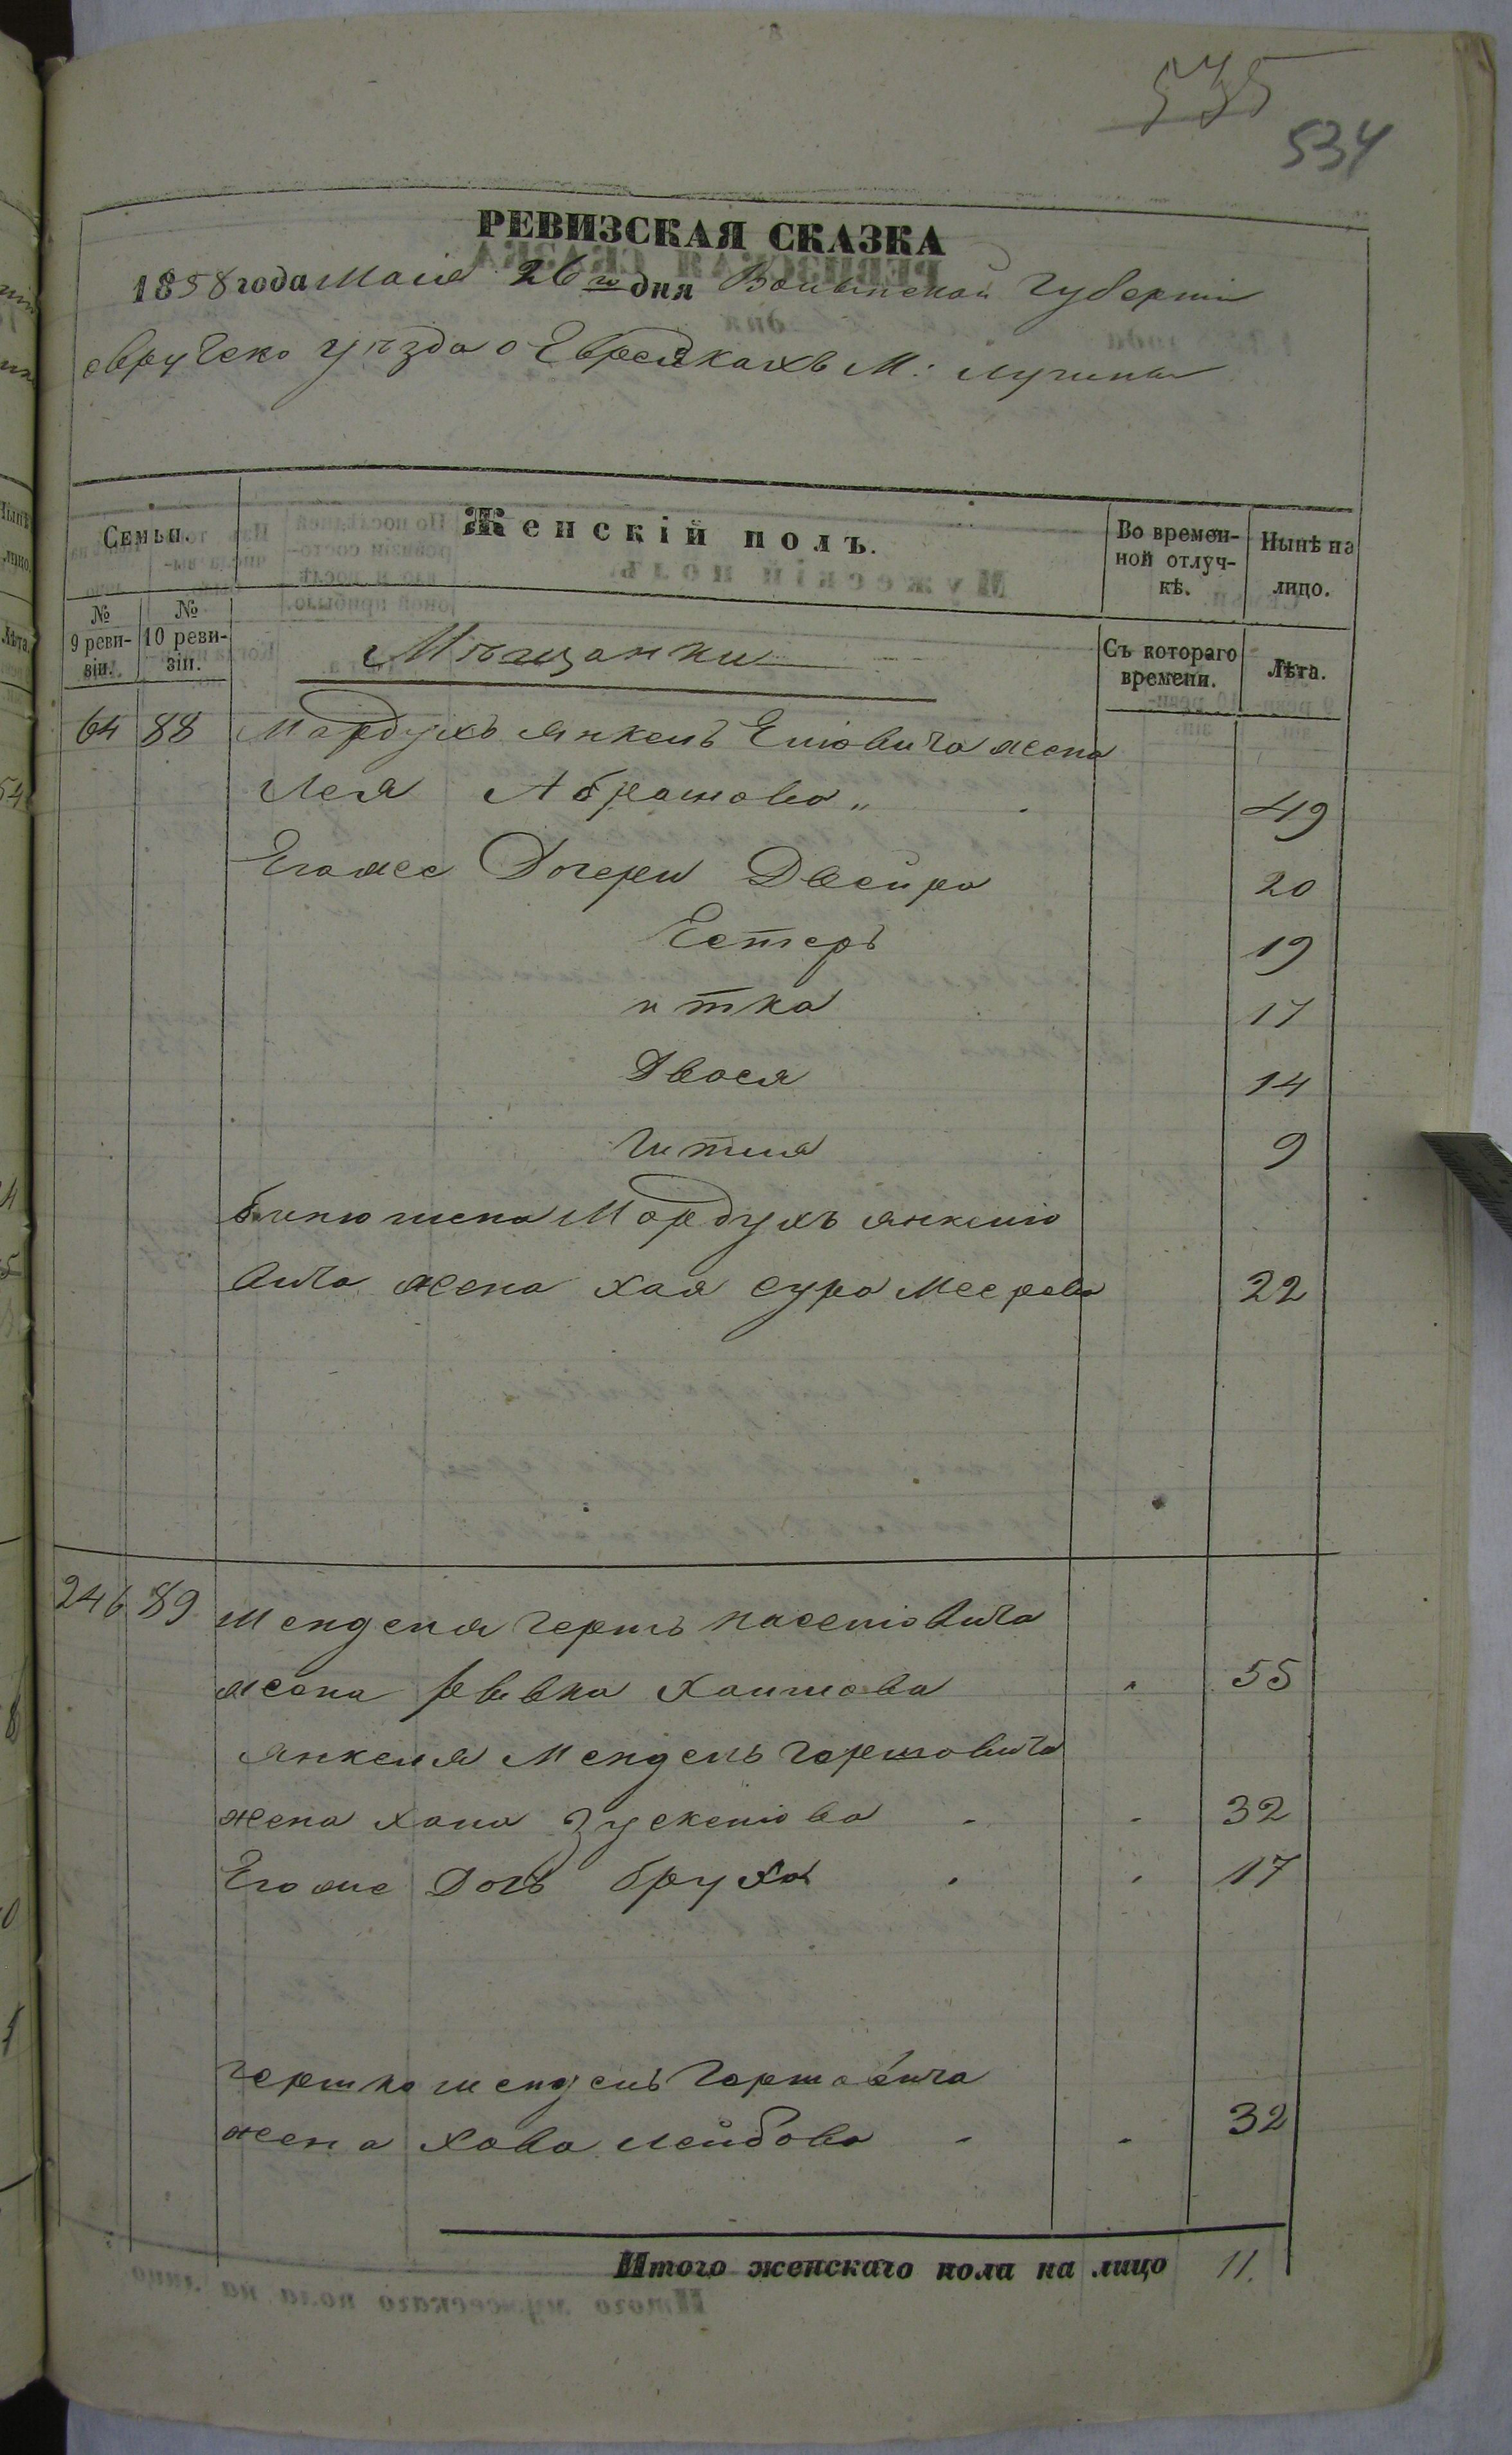 535
534
РЕВИЗСКАЯ СКАЗКА
1858 года Маія 26го дня Волынской Губерніи
овручско уѣзда о Еврейкахъ М: лугины
Семьи.
Женскій полъ.
Во времен-
ной отлуч-
кѣ.
Нынѣ на
лицо.
№
9 реви-
зіи.
№
10 реви-
зіи.
Мѣщанки
Съ котораго
времени.
Лѣта.
64 88 Мардухъ янкель Еліовича жена
Лея Абрамова „ 49
Егоже Дочери Двейра 20
Естеръ 19
итка 17
Двося 14
Гитля 9
Мардухъ янкеліо
вича жена хая сура Меерова 22
246 89 Менделя Герть иоселіовича
жена ривка Хаимова 55
янкеля Мендель Гершовича
жена хана Зускеліова 32
Егоже Дочь бруха 17
гершка мендель Гершовича
жена Хава лейбова 32
Итого женскаго пола на лицо 11.